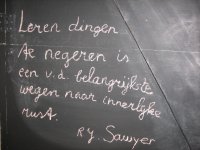 Leren dingen
te negeren is
een v.d. belangrijkste
wegen naar innerlijke
rust.
R.J. Sawyer